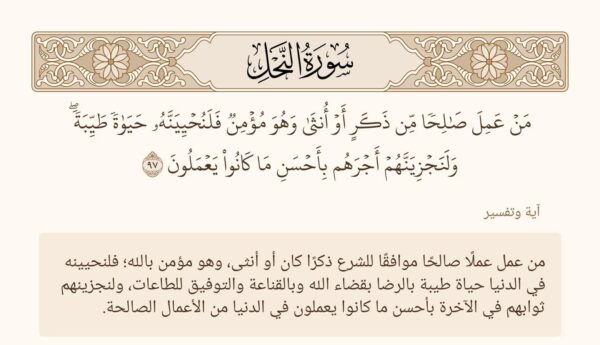 سُورَةُ النَّحْلِ
مَنْ عَمِلَ صَٰلِحًا مِّن ذَكَرٍ أَوْ أُنثَىٰ وَهُوَ مُؤْمِنٌ فَلَنُحْيِيَنَّهُۥ حَيَوٰةً طَيِّبَةًۖ
وَلَنَجْزِيَنَّهُمْ أَجْرَهُم بِأَحْسَنِ مَا كَانُوا۟ يَعْمَلُونَ ٩٧
آية وتفسير
من عمل عملًا صالحًا موافقًا للشرع ذكرًا كان أو أنثى، وهو مؤمن بالله؛ فلنحيينه
في الدنيا حياة طيبة بالرضا بقضاء الله وبالقناعة والتوفيق للطاعات، ولنجزينهم
ثوابهم في الآخرة بأحسن ما كانوا يعملون في الدنيا من الأعمال الصالحة.